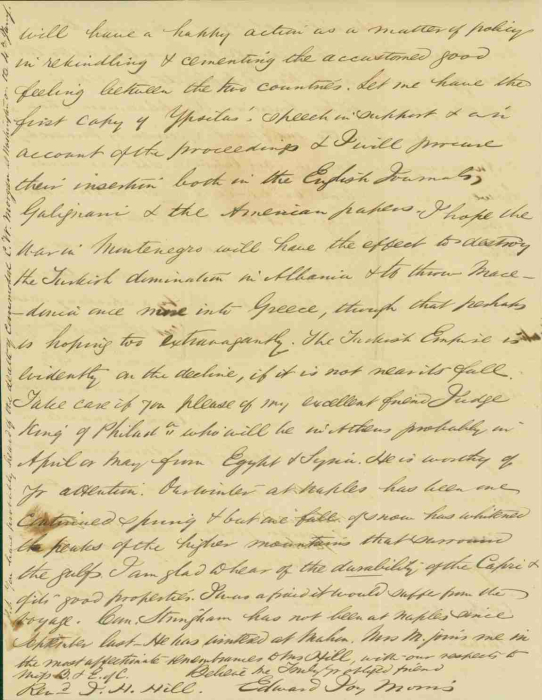 will have a happy action as a matter of policy
in rekindling & cementing the accustomed good
feeling between the two countries. Let me have the
first copy of Ypsitas' speech in support & an
account of the proceedings & I will procure
their insertion both in the English Journals,
Galignani & the American papers. I hope the
war in Montenegro will have the effect to destroy
the Turkish domination in Albania & to throw Mace-
-donia once more into Greece, though that perhaps
is hoping too extravagantly. The Turkish Empire is
evidently on the decline, if it is not near its fall.
Take care if you please of my excellent friend Judge
King of Philad^a who will be in Athens probably in
April or May from Egypt & Syria. He is worthy of
yr attention. Our winter at Naples has been one
continued spring & but one fall of snow has whitened
the peaks of the higher mountains that surround
the gulf. I am glad to hear of the durability of the Capri &
of its good properties. I was afraid it would suffer from the
voyage. Com. Stringham has not been at Naples since
September last. He has wintered at Mahon. Mrs M. joins me in
the most affectionate remembrances to Mrs Hill, with our respects to
Believe me truly yr obliged friend
Rev^d J. H. Hill. Edward Joy Morris
You have probably heard of the death of Commodore C. W. Morgan at Washington on the 4th Jany.